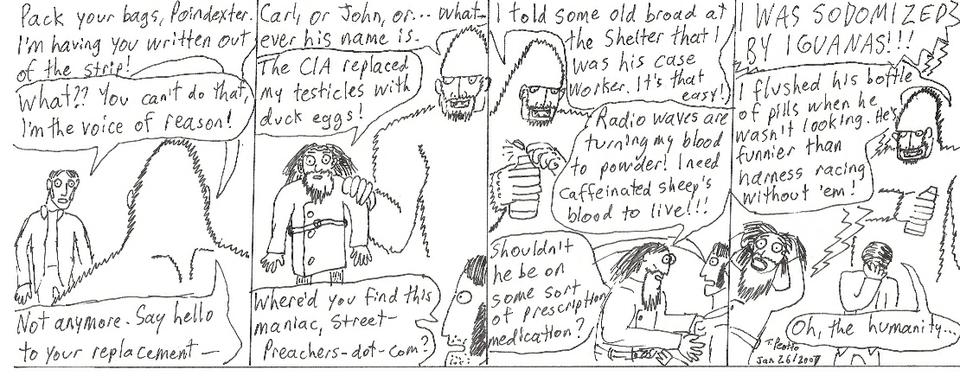 Pack your bags, Poindexter.
I'm having you written out
of the strip!
What?? You can't do that,
I'm the voice of reason!
Not anymore. Say hello
to your replacement —
Carl, or John, or... what-
ever his name is.
The CIA replaced
my testicles with
duck eggs!
Where'd you find this
maniac, Street-
Preachers-dot-com?
I told some old broad at
the Shelter that I
was his case
worker. It's that
easy!
Radio waves are
turning my blood
to powder! I need
caffeinated sheep's
blood to live!!!
Shouldn't
he be on
some sort
of prescription
medication?
I WAS SODOMIZED
BY IGUANAS!!!
I flushed his bottle
of pills when he
wasn't looking. He's
funnier than
harness racing
without 'em!
Oh, the humanity...
Jan 26/2007